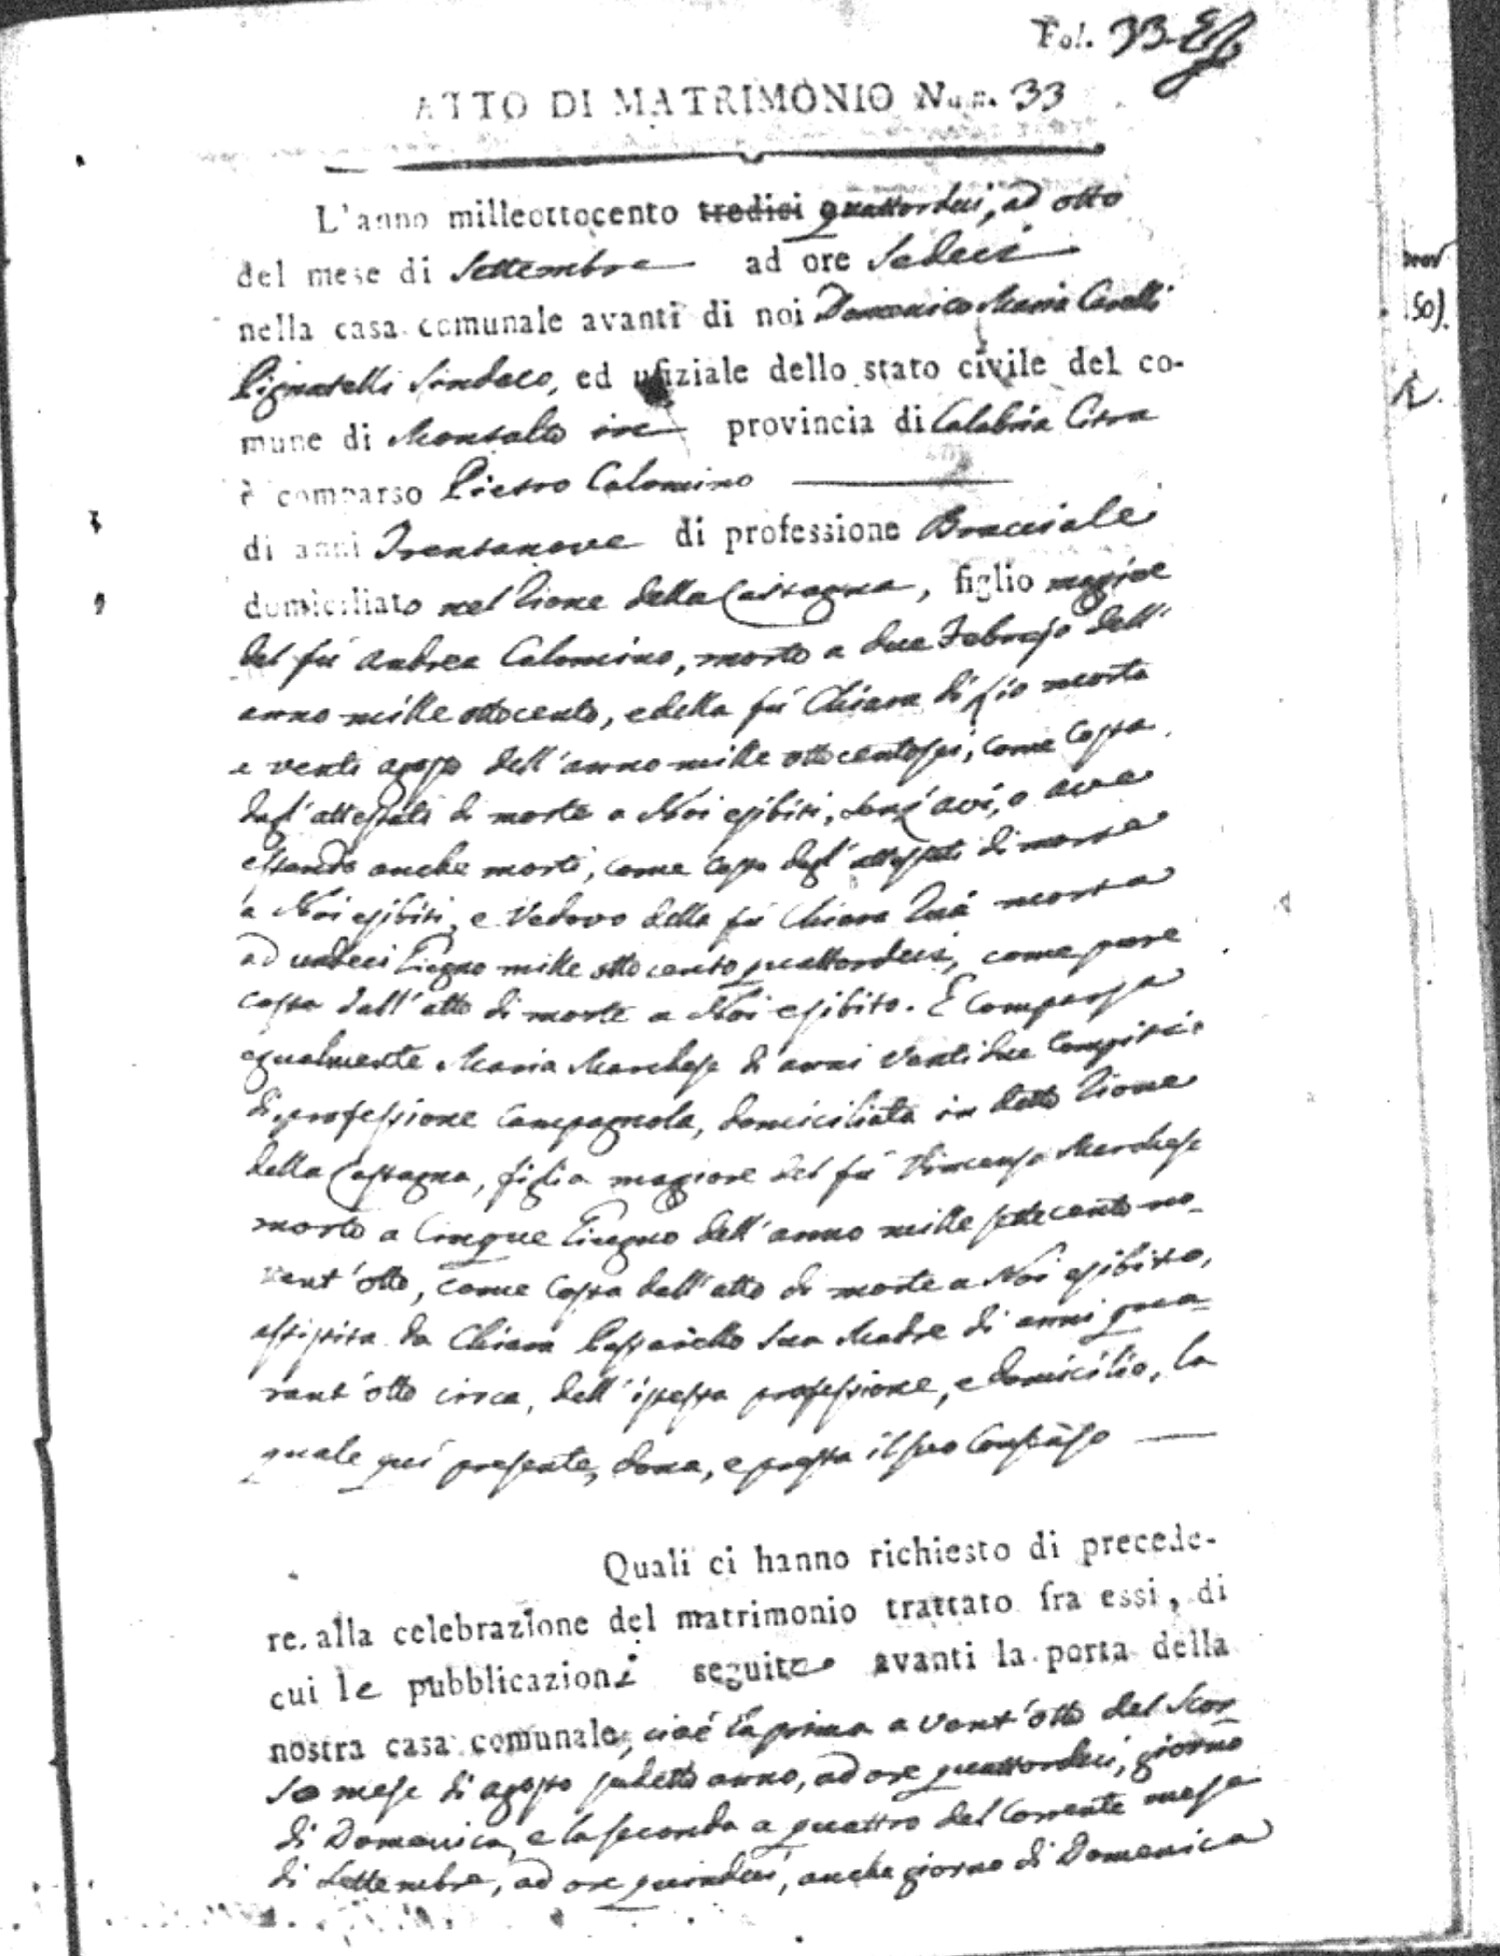 Fol. 33
ATTO DI MATRIMONIO Num. 33
L'anno milleottocento tredici quattordeci, ad otto
del mese di Settembre ad ore Sedeci
nella casa comunale avanti di noi Domenico Maria Cavalli
Pignatelli Sindaco, ed ufiziale dello stato civile del co-
mune di Montalto in provincia di Calabria Citra
è comparso Pietro Calomino
di anni Trentanove di professione Bracciale
domiciliato nel Rione della Castagna, figlio magiore
del fù Andrea Calomino, morto a due Febrajo dell'
anno mille ottocento, e della fù Chiara di Lio morta
a venti agosto dell'anno mille ottocentosei, come costa
dagl'attestati di morte a Noi esibiti, senz'avi, o ave
essendo anche morti, come costa dagl'attestati di morte
a Noi esibiti, e Vedovo della fù Chiara morta
ad undeci Giugno mille ottocento quattordeci, come pure
costa dall'atto di morte a Noi esibito. È comparsa
egualmente Maria Marchese di anni Ventidue compiti
di professione Campagnola, domiciliata in detto Rione
della Castagna, figlia magiore del fù Vincenzo Marchese
morto a Cinque Giugno dell'anno mille settecento no-
vant'otto, come costa dall'atto di morte a Noi esibito,
assistita da Chiara Passarello sua Madre di anni qua-
rant'otto circa, dell'istessa professione, e domicilio, la
quale quì presente, dona, e presta il suo Consenso
Quali ci hanno richiesto di precede-
re alla celebrazione del matrimonio trattato fra essi, di
cui le pubblicazioni seguite avanti la porta della
nostra casa comunale, cioè la prima a vent'otto del Scor-
so mese di agosto sudetto anno, ad ore quattordeci, giorno
di Domenica, e la seconda a quattro del corrente mese
di Settembre, ad ore quindeci, anche giorno di Domenica